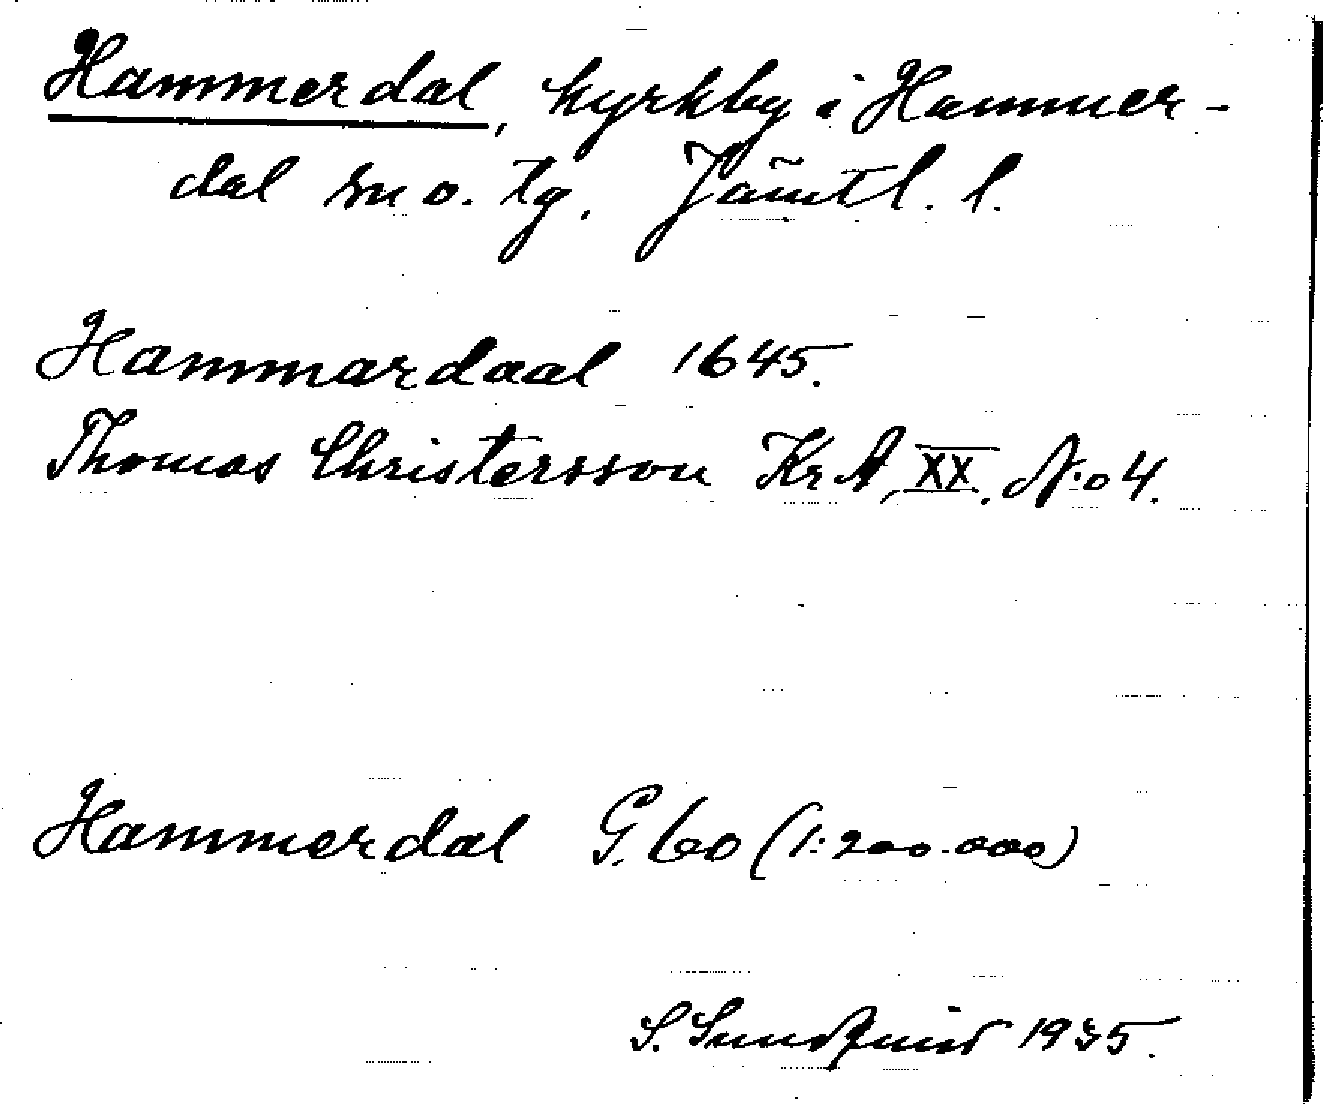 Hammerdal, kyrkby i Hammer-
dal sn o. tg. Jämtl. l.
Hammardaal 1645.
Thomas Christersson Kr A, XX. No 4.
Hammerdal G. 60 (1:200.000)
S. Sundquist 1935.